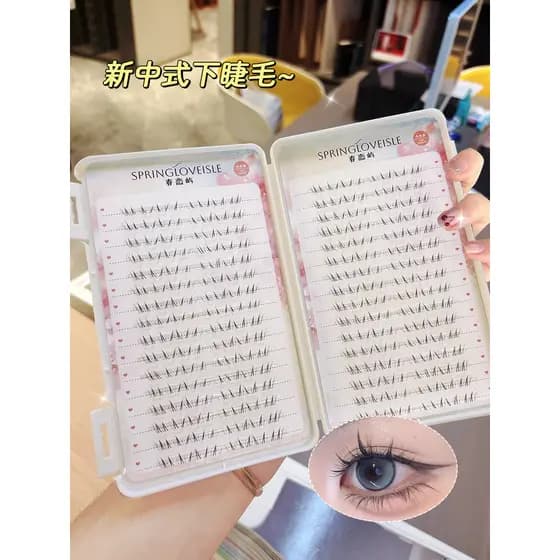 新中式下睫毛~
SPRINGLOVEISLE
春恋屿
SPRINGLOVEISLE
春恋屿